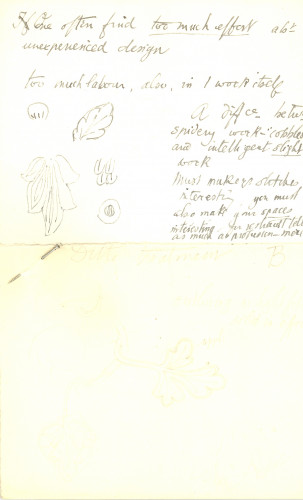 One often find too much effort abt
unexperienced design
too much labour, also, in / work itself
A diffce betwn
spidery work - cobbled
and intelligent slight
work
Must make yr stitches
interesting you must
also make your spaces
interesting
as much as